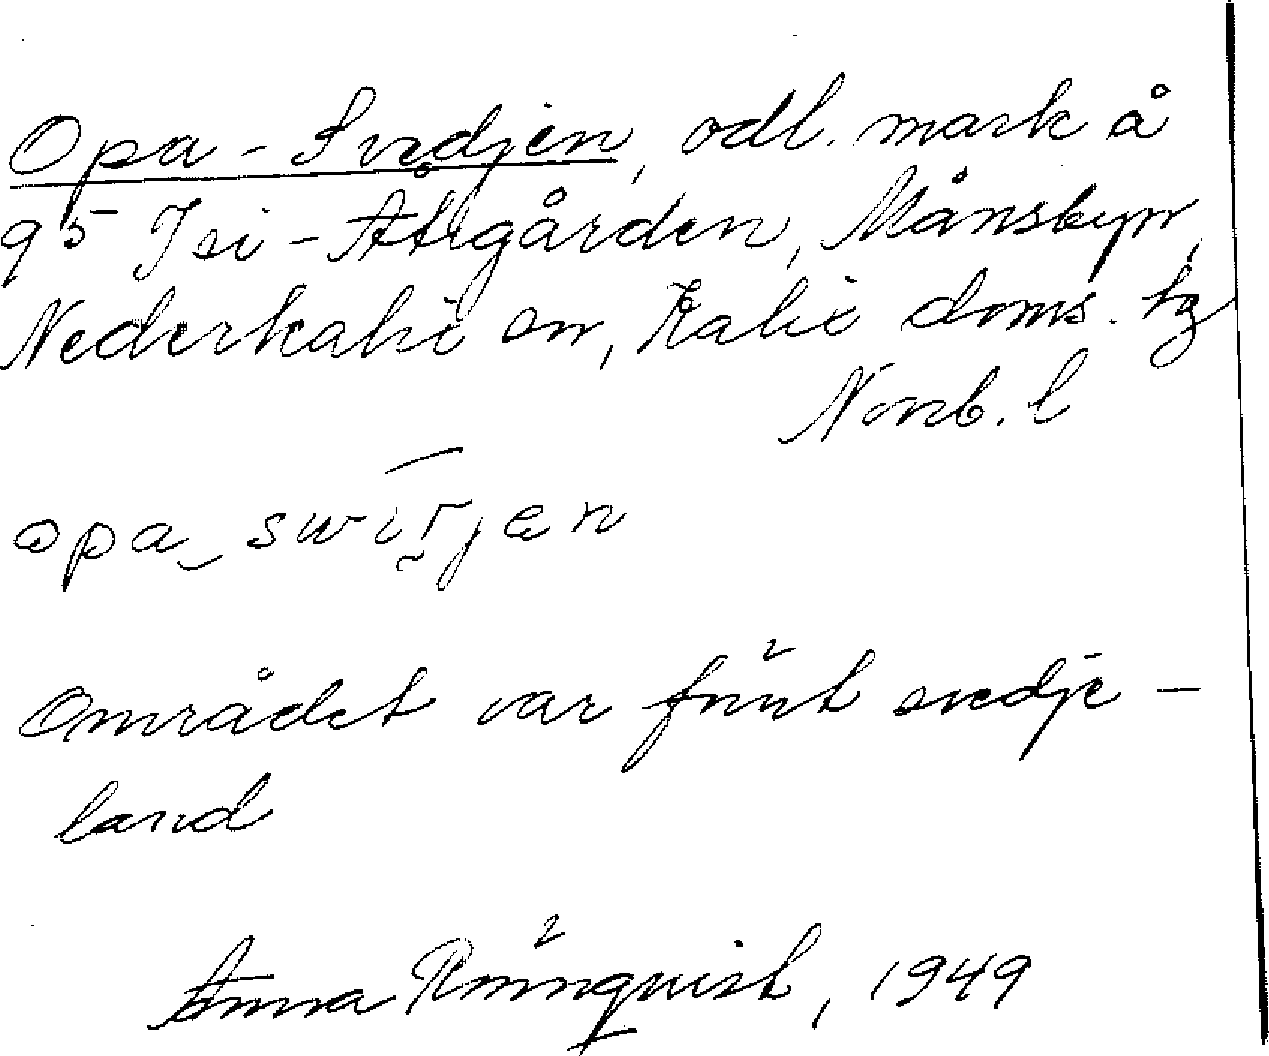 Opa-Svedjen, odl. mark å
95 Isi-Åkrgården, Månsbyn,
Nederkalix sn, Kalix doms. tg
Norrb. l
opa_swiɾjen
Området var förut svedje-
land
Anna Rönnquist, 1949